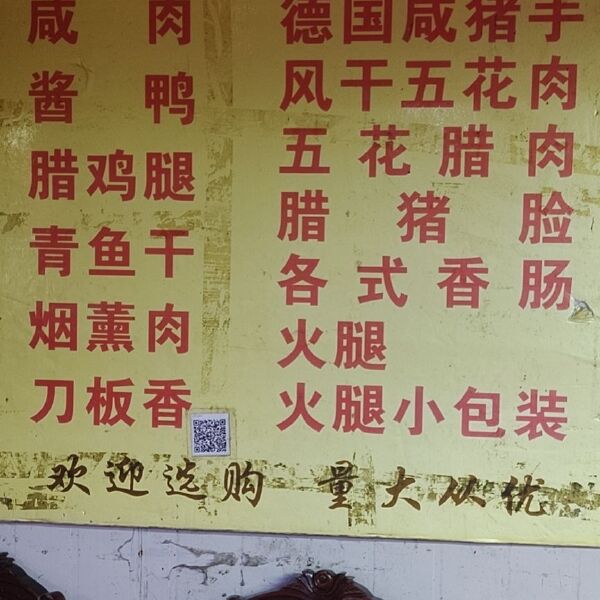 咸肉
酱鸭
腊鸡腿
青鱼干
烟薰肉
刀板香
德国咸猪手
风干五花肉
五花腊肉
腊猪脸
各式香肠
火腿
火腿小包装
欢迎选购 量大从优